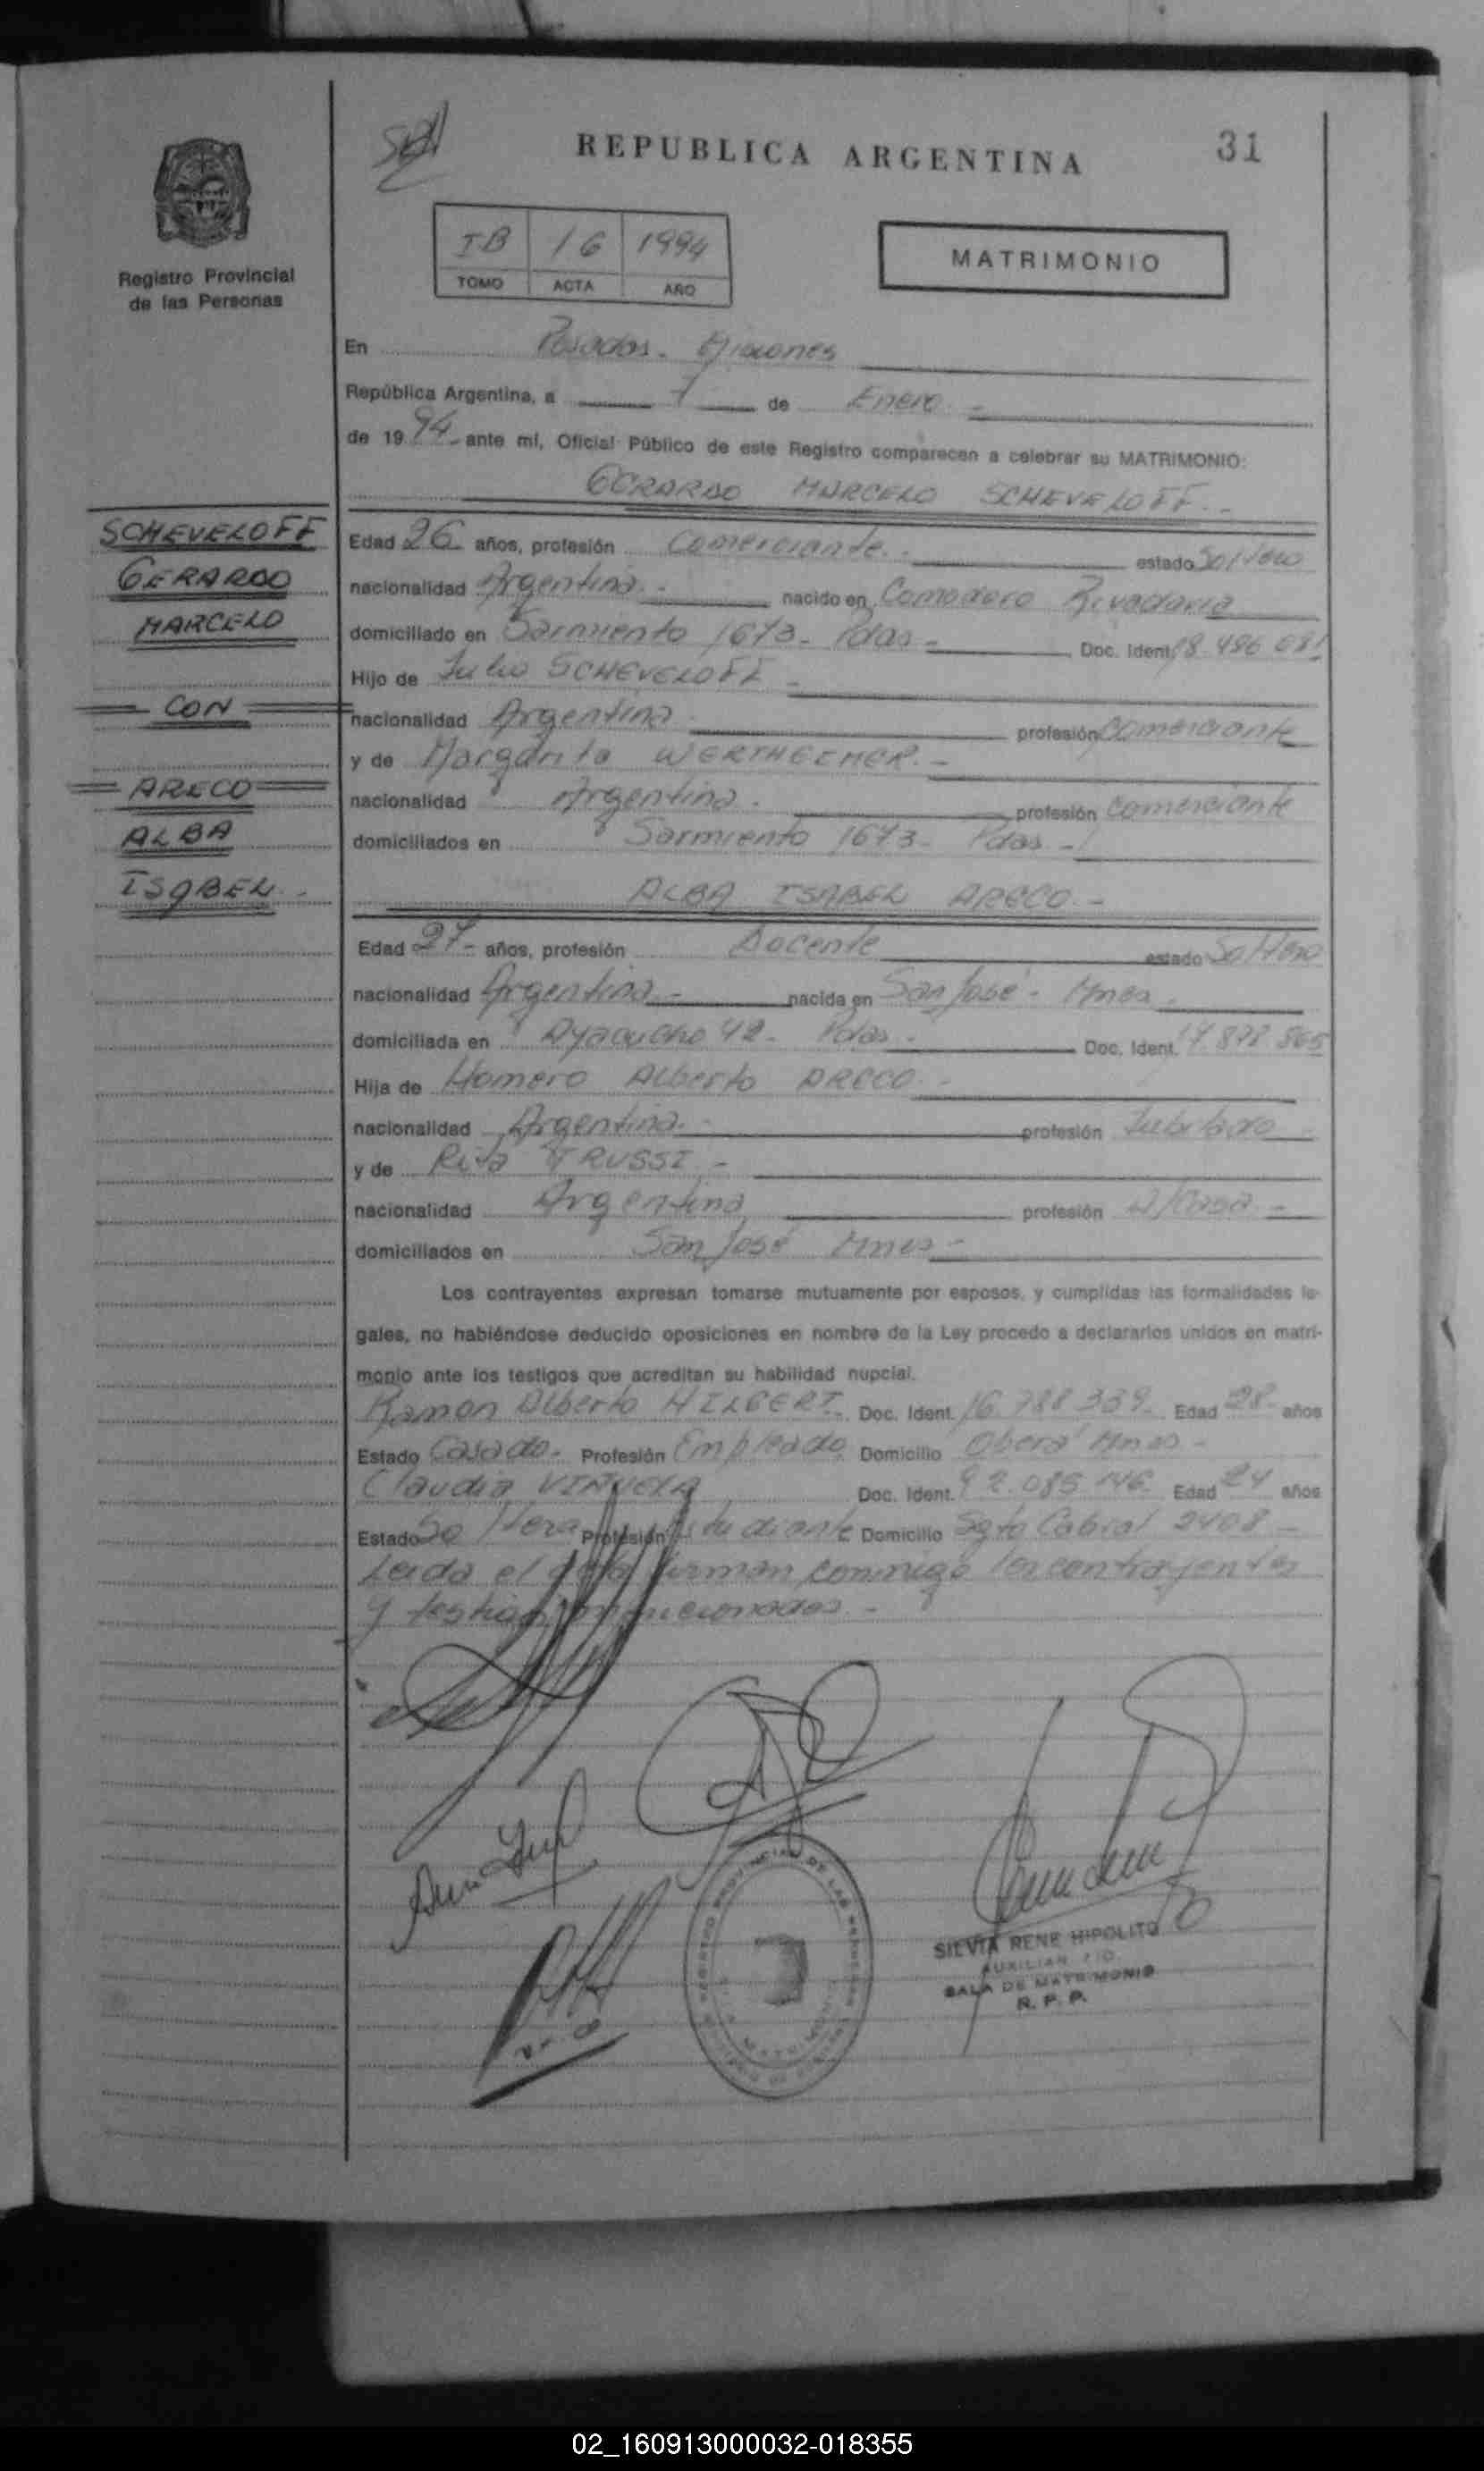 REPUBLICA ARGENTINA
31
Registro Provincial
de las Personas
IB 16 1994
TOMO ACTA AÑO
MATRIMONIO
En Posadas. Misiones
República Argentina, a 7 de Enero.-
de 1994- ante mí, Oficial Público de este Registro comparecen a celebrar su MATRIMONIO:
GERARDO MARCELO SCHEVELOFF.-
SCHEVELOFF
GERARDO
MARCELO
CON
ARECO
ALBA
ISABEL.-
Edad 26 años, profesión Comerciante.- estado Soltero
nacionalidad Argentina.- nacido en Comodoro Rivadavia
domiciliado en Sarmiento 1673- Pdas- Doc. Ident. 18.486.081
Hijo de Julio SCHEVELOFF-
nacionalidad Argentina profesión Comerciante
y de Margarita WERTHEIMER.-
nacionalidad Argentina. profesión Comerciante
domiciliados en Sarmiento 1673- Pdas.-
ALBA ISABEL ARECO-
Edad 27- años, profesión Docente estado Soltera
nacionalidad Argentina- nacida en San José- Mnes.
domiciliada en Ayacucho 42- Pdas.- Doc. Ident. 17.878.865
Hija de Homero Alberto ARECO.-
nacionalidad Argentina.- profesión Jubilado
y de Rita TRUSSI-
nacionalidad Argentina profesión A/Casa-
domiciliados en San José Mnes-
Los contrayentes expresan tomarse mutuamente por esposos, y cumplidas las formalidades le-
gales, no habiéndose deducido oposiciones en nombre de la Ley procedo a declararlos unidos en matri-
monio ante los testigos que acreditan su habilidad nupcial.
Ramon Alberto HILGERT- Doc. Ident. 16.788.339- Edad 28- años
Estado Casado- Profesión Empleado Domicilio Oberá Mnes-
Claudia VINUELA Doc. Ident. 92.085.146- Edad 24 años
Estado Soltera Profesión Estudiante Domicilio Sgto Cabral 2408-
Leida el acta firman conmigo los contrayentes
y testigos mencionados-
SILVIA RENE HIPOLITO
AUXILIAR
SALA DE MATRIMONIO
R. P. P.
02_160913000032-018355